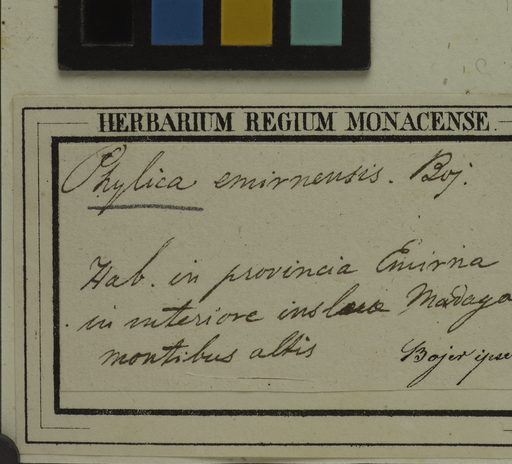 HERBARIUM REGIUM MONACENSE.
Phylica emirnensis. Boj.
Hab. in provincia Emirna
in interiore insulae Madaga
montibus altis
Bojer ipse